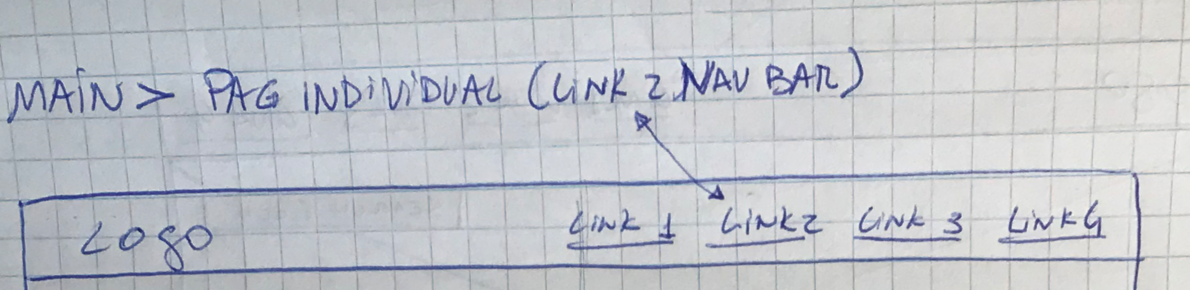 MAIN > PAG INDIVIDUAL (LINK 2 NAV BAR)
LOGO LINK 1 LINK2 LINK 3 LINK4